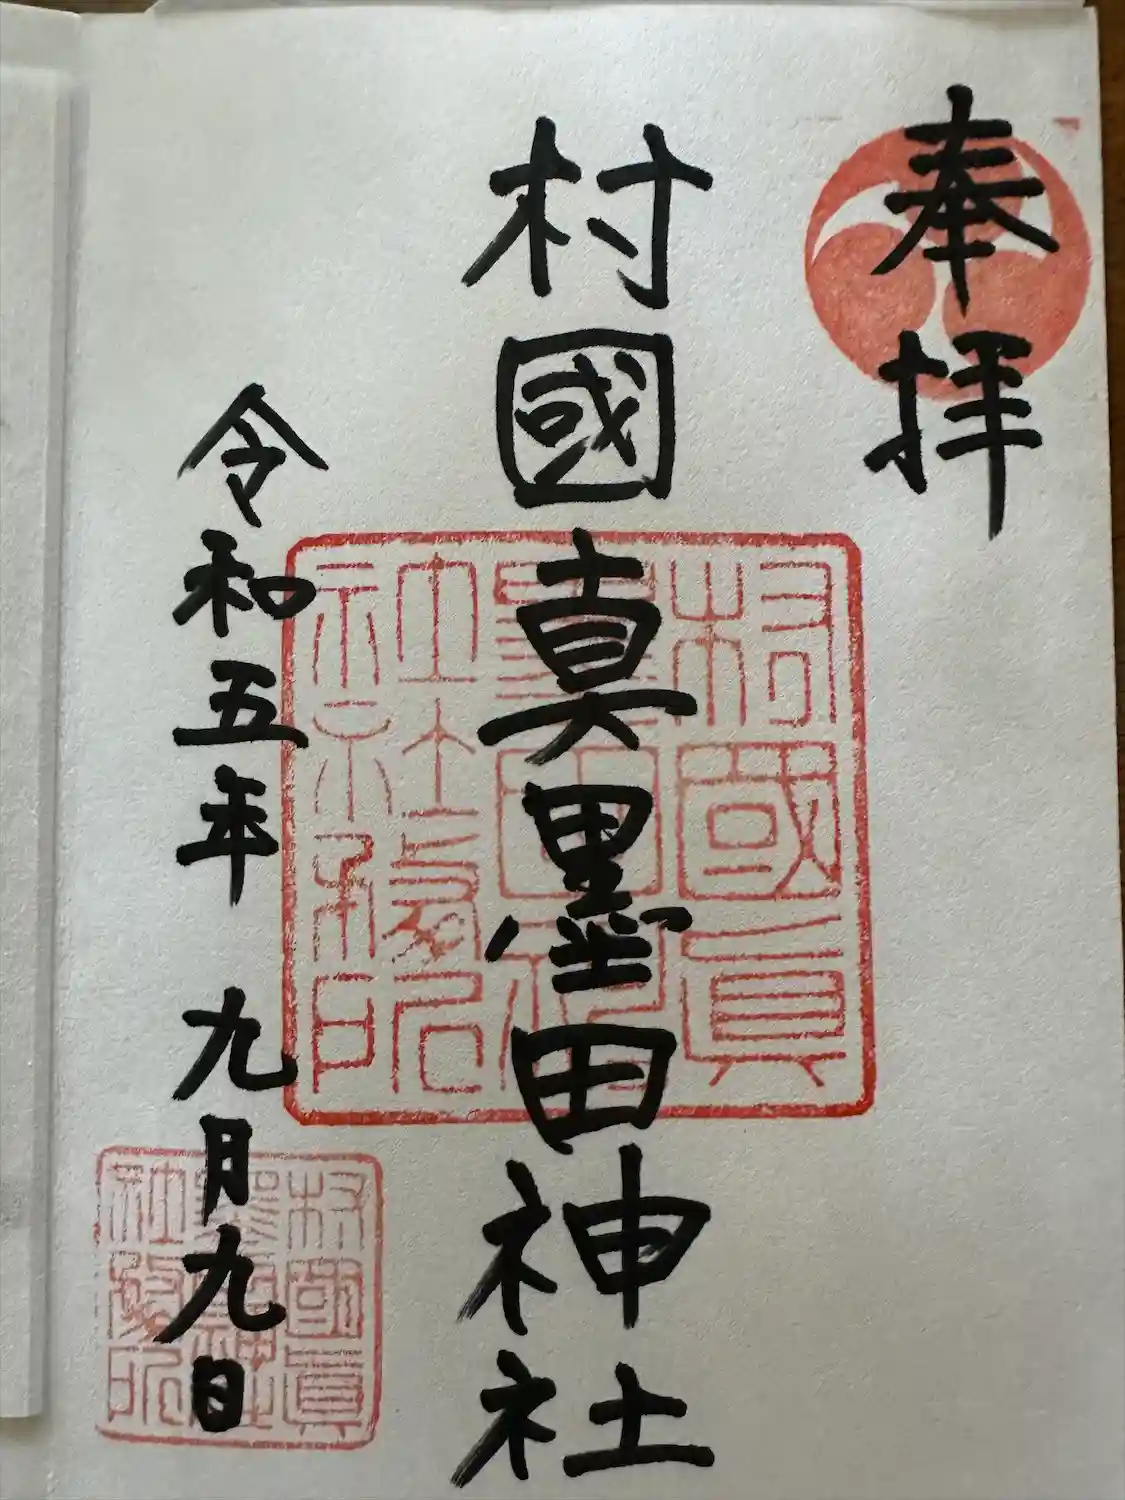 奉拝
村國真墨田神社
令和五年 九月九日
村國真
墨田神
社社務所
村國真
墨田神社
社務所